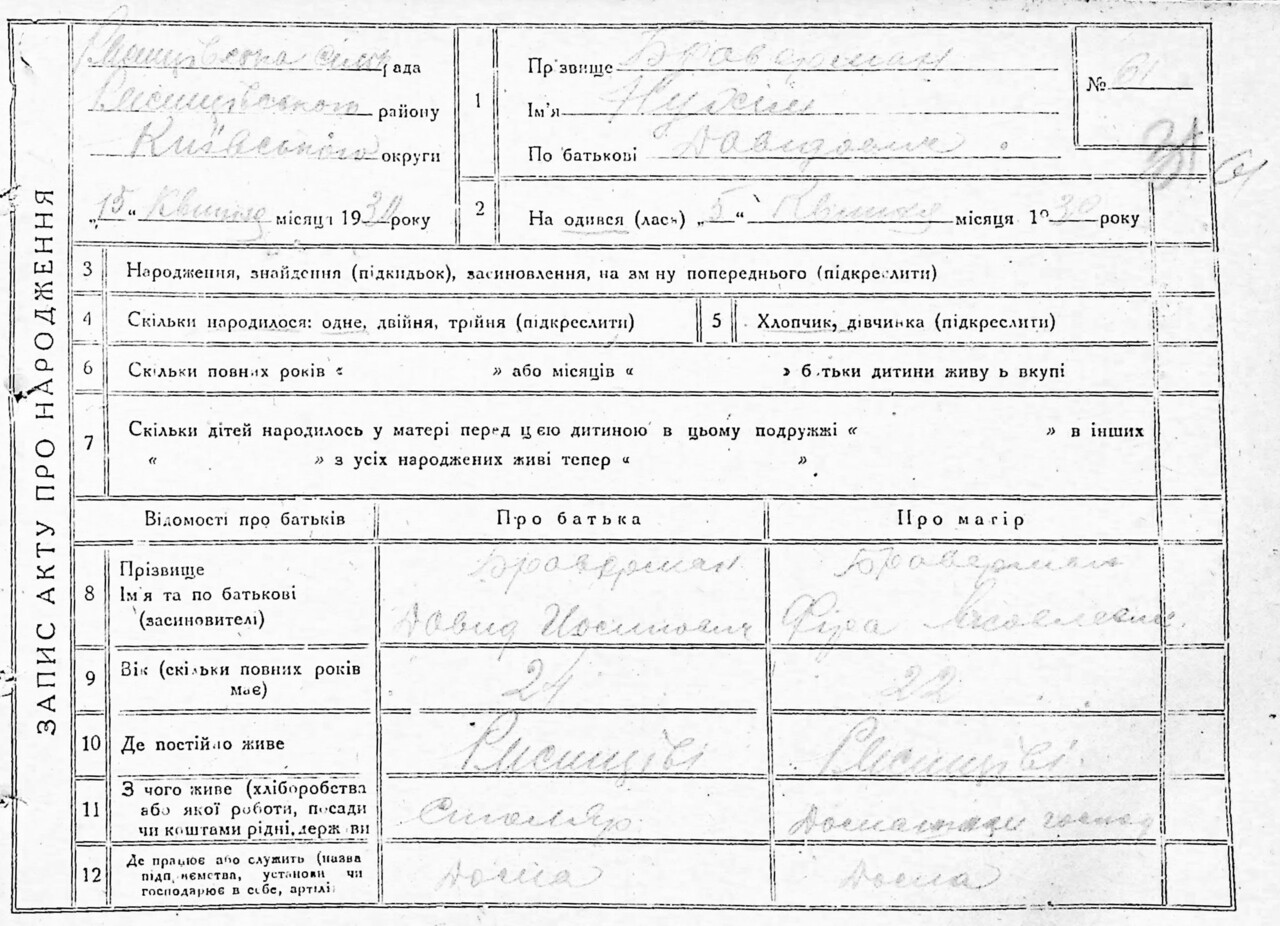 ЗАПИС АКТУ ПРО НАРОДЖЕННЯ
рада
району
Київського округи
„15“ Квітня місяця 1930 року
1
Прізвище Браверман
Ім'я Нухім
По батькові Давидович
№ 61
61
2
На одився (лась) „5“ Квітня місяця 1930 року
3 Народження, знайдення (підкидьок), засиновлення, на зм ну попереднього (підкреслити)
4 Скільки народилося: одне, двійня, трійня (підкреслити)
5 Хлопчик, дівчинка (підкреслити)
6 Скільки повних років « » або місяців « » б тьки дитини живу ь вкупі
7 Скільки дітей народилось у матері перед цією дитиною в цьому подружжі « » в інших
« » з усіх народжених живі тепер « »
Відомості про батьків Про батька Про матір
8 Прізвище
Ім'я та по батькові
(засиновителі)
Браверман
Давид Иосипович
Браверман
Фіра
9 Вік (скільки повних років
має)
24
22
10 Де постійно живе
11 З чого живе (хліборобства
або якої роботи, посади
чи коштами рідні, держ ви
Столяр
Домашнє господ
12 Де працює або служить (назва
підп. иємства, установи чи
господарює в себе, артілі
Дома
Дома